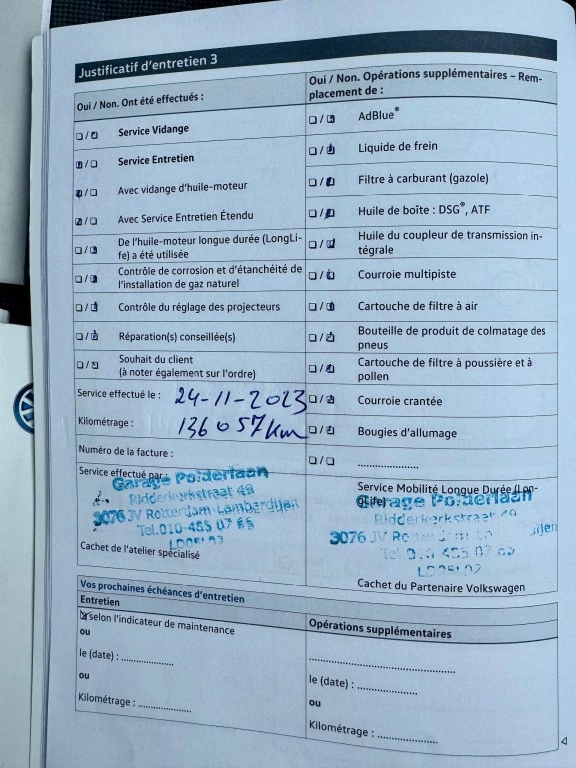 Justificatif d'entretien 3
Oui / Non. Ont été effectués :
☐ / ☑ Service Vidange
☑ / ☐ Service Entretien
☑ / ☐ Avec vidange d'huile-moteur
☑ / ☐ Avec Service Entretien Étendu
☐ / ☑ De l'huile-moteur longue durée (LongLi-
fe) a été utilisée
☐ / ☑ Contrôle de corrosion et d'étanchéité de
l'installation de gaz naturel
☐ / ☑ Contrôle du réglage des projecteurs
☐ / ☑ Réparation(s) conseillée(s)
☐ / ☑ Souhait du client
(à noter également sur l'ordre)
Service effectué le : 24-11-2023
Kilométrage : 136057km
Numéro de la facture :
Service effectué par :
Garage Polderlaan
Ridderkerkstraat 49
3076 JV Rotterdam-Lombardijen
Tel.010-
Cachet de l'atelier spécialisé
Oui / Non. Opérations supplémentaires – Rem-
placement de :
☐ / ☑ AdBlue®
☐ / ☑ Liquide de frein
☐ / ☑ Filtre à carburant (gazole)
☐ / ☑ Huile de boîte : DSG®, ATF
☐ / ☑ Huile du coupleur de transmission in-
tégrale
☐ / ☑ Courroie multipiste
☐ / ☑ Cartouche de filtre à air
☐ / ☑ Bouteille de produit de colmatage des
pneus
☐ / ☑ Cartouche de filtre à poussière et à
pollen
☐ / ☑ Courroie crantée
☐ / ☑ Bougies d'allumage
☐ / ☐ ....................
Service Mobilité Longue Durée (Lon-
gLife)
Garage Polderlaan
Ridderkerkstraat 49
3076 JV
Cachet du Partenaire Volkswagen
Vos prochaines échéances d'entretien
Entretien
☑ selon l'indicateur de maintenance
ou
le (date) : ..................
ou
Kilométrage : ..................
Opérations supplémentaires
..................................................
le (date) : ....................
ou
Kilométrage : ....................